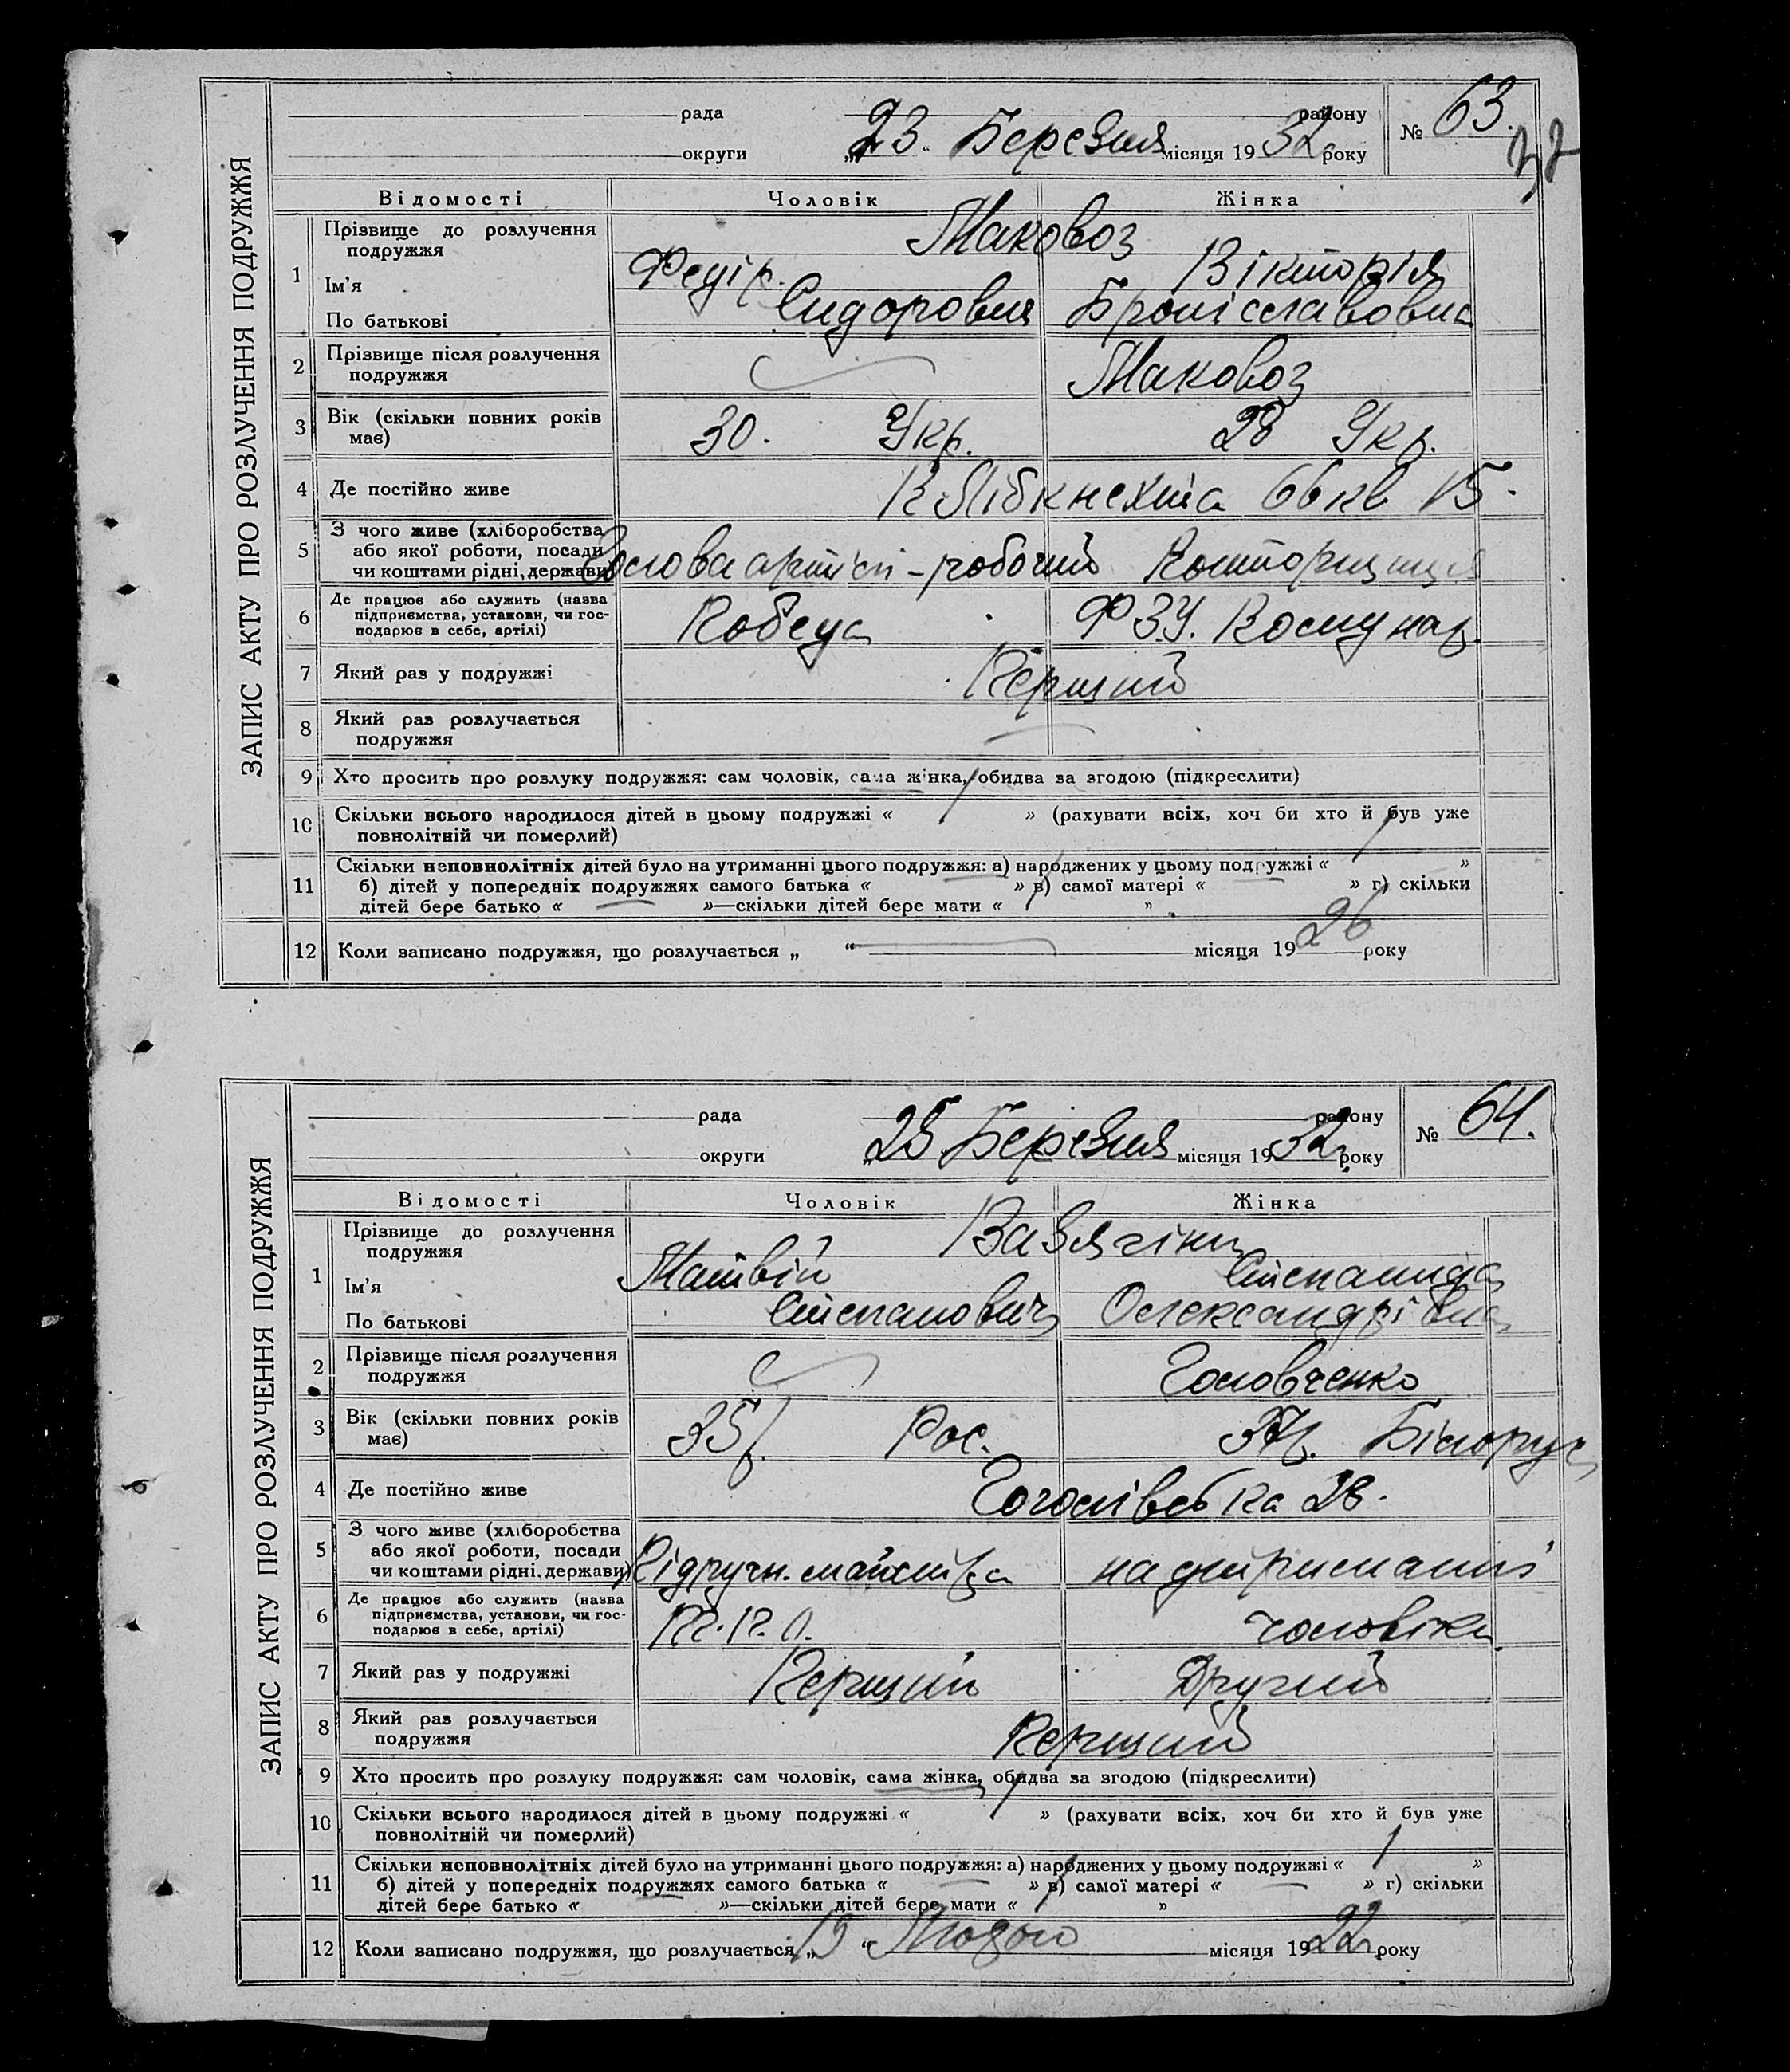 ЗАПИС АКТУ ПРО РОЗЛУЧЕННЯ ПОДРУЖЖЯ
рада району № 63.
округи „23“ Березня місяця 1932 року
Відомості Чоловік Жінка
1 Прізвище до розлучення подружжя Маковоз
Ім'я Федір Вікторія
По батькові Сидорович Броніславовна
2 Прізвище після розлучення
подружжя Маковоз
3 Вік (скільки повних років
має) 30. Укр. 28 Укр.
4 Де постійно живе К Лібкнехта 66 кв 15.
5 З чого живе (хліборобства
або якої роботи, посади
чи коштами рідні, держави) Голова артілі - робочий
6 Де працює або служить (назва
підприємства, установи, чи гос-
подарює в себе, артілі) Ф.З.У. Комунар.
7 Який раз у подружжі Перший
8 Який раз розлучається
подружжя
9 Хто просить про розлуку подружжя: сам чоловік, сама жінка, обидва за згодою (підкреслити)
10 Скільки всього народилося дітей в цьому подружжі « 1 » (рахувати всіх, хоч би хто й був уже
повнолітній чи померлий)
11 Скільки неповнолітніх дітей було на утриманні цього подружжя: а) народжених у цьому подружжі « 1 »
б) дітей у попередніх подружжях самого батька « — » в) самої матері « — » г) скільки
дітей бере батько « — »—скільки дітей бере мати « 1 »
12 Коли записано подружжя, що розлучається „ “ місяця 1926 року
ЗАПИС АКТУ ПРО РОЗЛУЧЕННЯ ПОДРУЖЖЯ
рада району № 64.
округи „25 Березня місяця 1932 року
Відомості Чоловік Жінка
1 Прізвище до розлучення
подружжя
Ім'я Матвій Степанида
По батькові Степанович Олександрівна
2 Прізвище після розлучення
подружжя Головченко
3 Вік (скільки повних років
має) 35 р. Рос. Білорус
4 Де постійно живе Гоголівська 28.
5 З чого живе (хліборобства
або якої роботи, посади
чи коштами рідні, держави) Підручн. майстра на утриманні
6 Де працює або служить (назва
підприємства, установи, чи гос-
подарює в себе, артілі) чоловіка
7 Який раз у подружжі Перший Другий
8 Який раз розлучається
подружжя Перший
9 Хто просить про розлуку подружжя: сам чоловік, сама жінка, обидва за згодою (підкреслити)
10 Скільки всього народилося дітей в цьому подружжі « 1 » (рахувати всіх, хоч би хто й був уже
повнолітній чи померлий)
11 Скільки неповнолітніх дітей було на утриманні цього подружжя: а) народжених у цьому подружжі « 1 »
б) дітей у попередніх подружжях самого батька « — » в) самої матері « — » г) скільки
дітей бере батько « — »—скільки дітей бере мати « 1 »
12 Коли записано подружжя, що розлучається „19“ Лютого місяця 1922 року